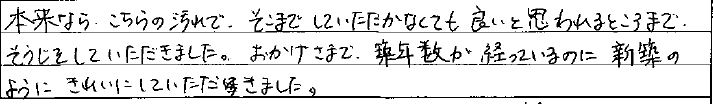 本来なら、こちらの汚れで、そこまでしていただかなくても良いと思われるところまで、
そうじをしていただきました。おかげさまで、築年数が経っているのに新築の
ようにきれいにしていただきました。